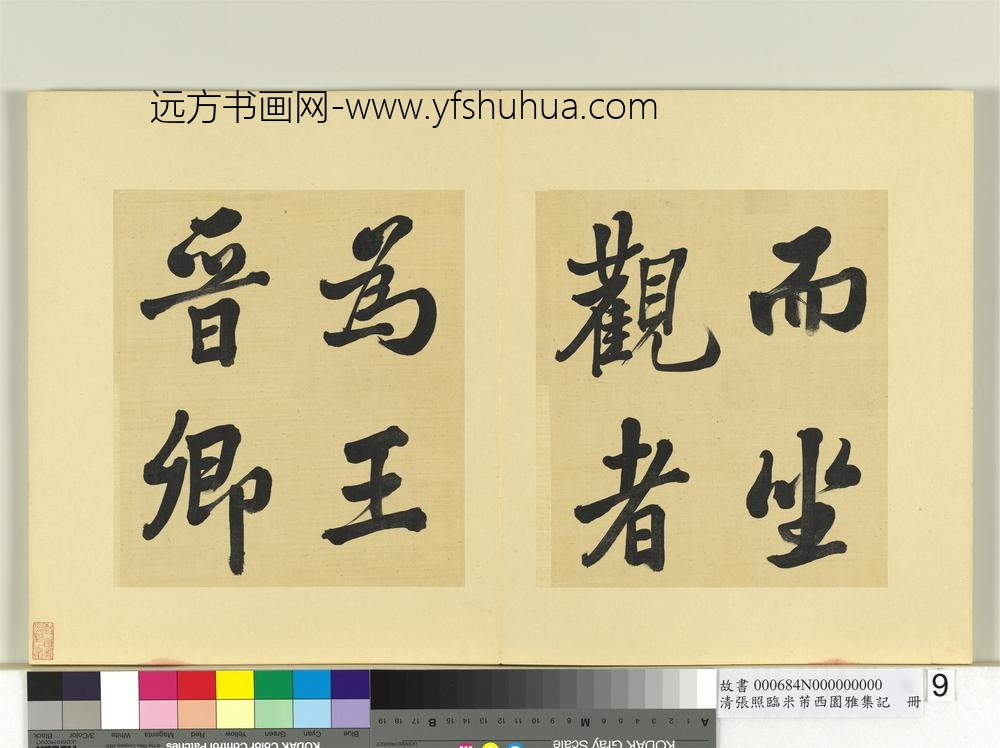 远方书画网-www.yfshuhua.com
而坐
觀者
為王
晉卿
故書 000684N000000000
清張照臨米芾西園雅集記 冊
9
Blue
Cyan
Green
Yellow
Red
Magenta
White
3/Color
Black
KODAK Color Control Patches
KODAK Gray Scale
A 1 2 3 4 5 6 M 8 9 10 11 12 13 14 15 B 17 18 19